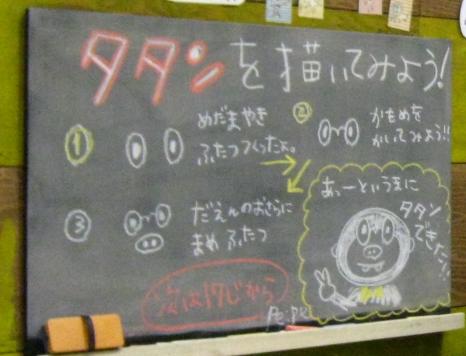 タタンを描いてみよう!
① めだまやき
ふたつつくったよ。
② かもめを
かいてみよう!!
③ だえんのおさらに
まめ ふたつ
あっーというまに
タタン
できたー!!
次は17じから